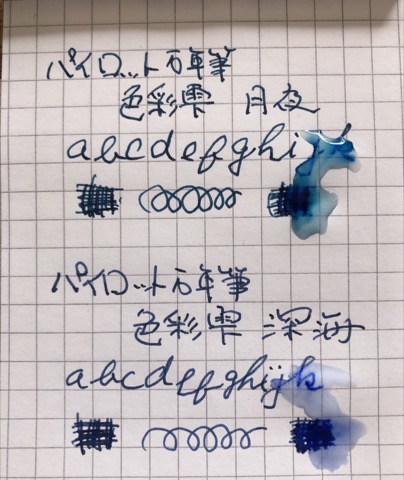 パイロット万年筆
色彩雫 月夜
abcdefghij
パイロット万年筆
色彩雫 深海
abcdefghijk